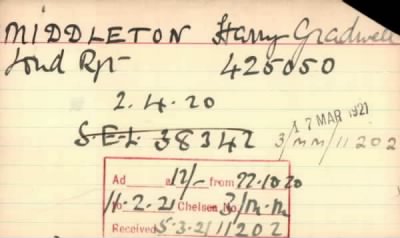 MIDDLETON Harry Gradwell
Lnd Rfn 425050
2.4.20
S.E.L. 38342
17 MAR 1921
3/MM/11202
Ad a 12/- from 22.10.20
to 11.2.21 Chelsea No 3/M.M
Received 5.3.21 11202